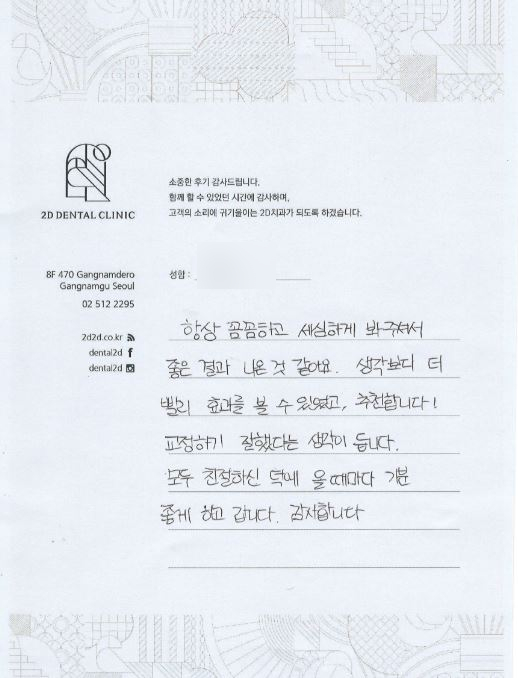 2D DENTAL CLINIC
소중한 후기 감사드립니다.
함께 할 수 있었던 시간에 감사하며,
고객의 소리에 귀기울이는 2D치과가 되도록 하겠습니다.
8F 470 Gangnamdero
Gangnamgu Seoul
02 512 2295
2d2d.co.kr
dental2d
dental2d
성함 :
항상 꼼꼼하고 세심하게 봐주셔서
좋은 결과 나온 것 같아요. 생각보다 더
빨리 효과를 볼 수 있었고, 추천합니다!
교정하기 잘했다는 생각이 듭니다.
모두 친절하신 덕에 올때마다 기분
좋게 하고 갑니다. 감사합니다